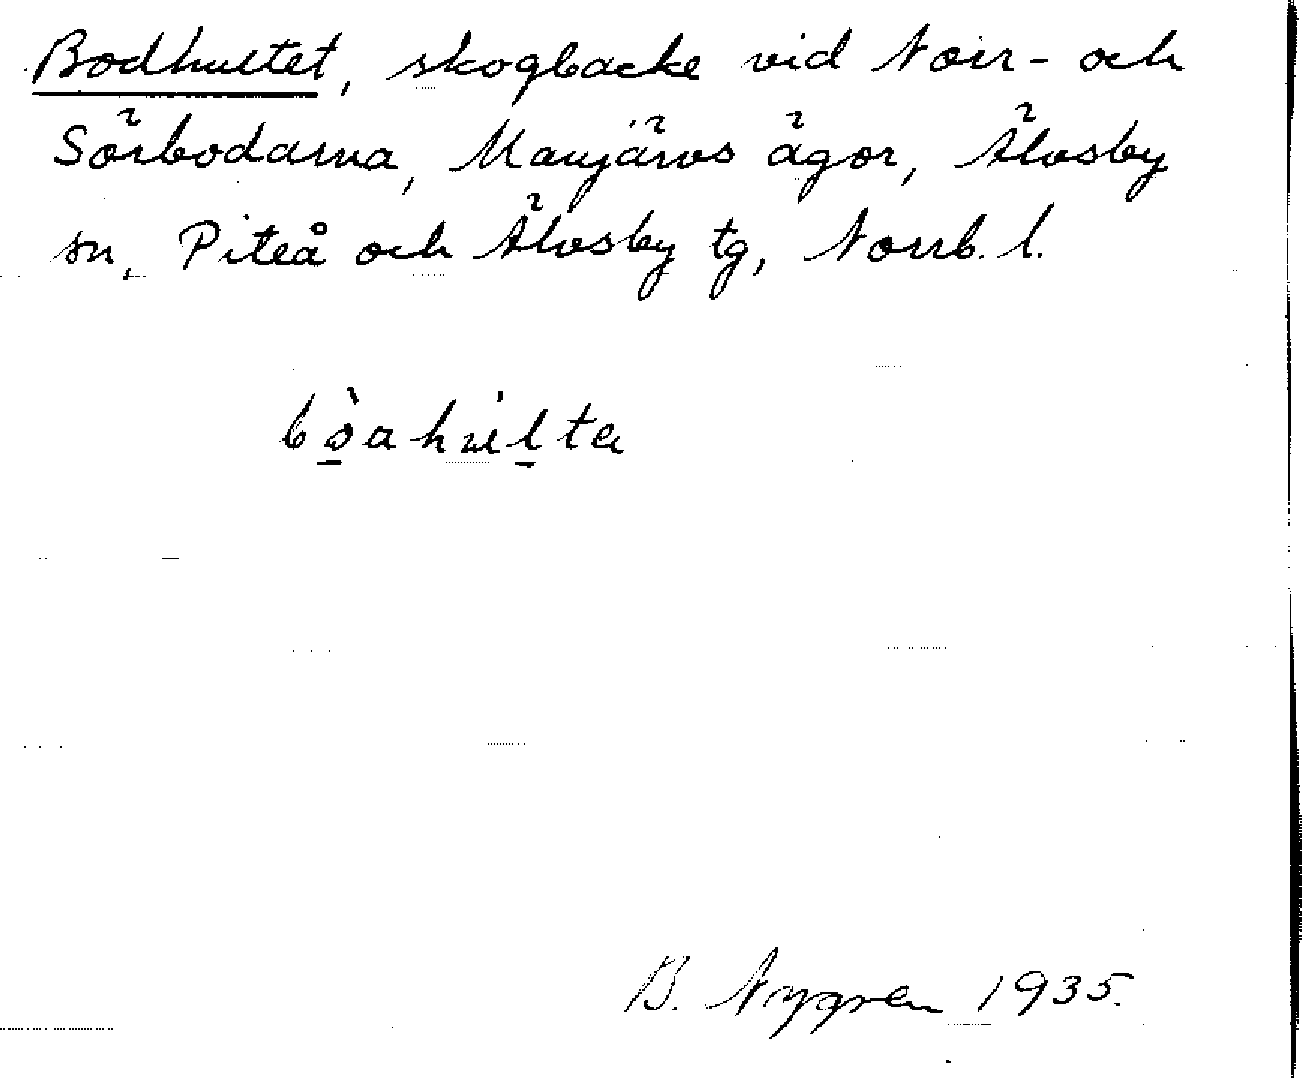 Bodhultet, skogbacke vid Norr- och
Sörbodarna, Manjärvs ägor, Älvsby
sn, Piteå och Älvsby tg, Norrb. l.
B. Nygren 1935.